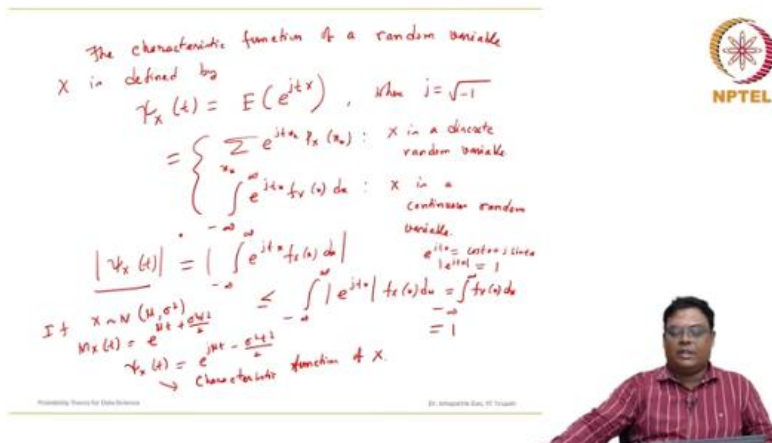 The characteristic function of a random variable
X is defined by
Ψ_X (t) = E(e^{jtX}), where j = √-1
= { Σ_{x_k} e^{jtx_k} P_X (x_k) : X is a discrete
random variable
∫_{-∞}^{∞} e^{jtx} f_X(x) dx : X is a
continuous random
variable.
e^{jtx} = cos tx + j sin tx
|e^{jtx}| = 1
|Ψ_X (t)| = | ∫_{-∞}^{∞} e^{jtx} f_X(x) dx |
≤ ∫_{-∞}^{∞} |e^{jtx}| f_X(x) dx = ∫_{-∞}^{∞} f_X(x) dx
= 1
If X ~ N (μ, σ²)
M_X (t) = e^{μt + σ²t²/2}
Ψ_X (t) = e^{jμt - σ²t²/2}
↳ Characteristic function of X.
NPTEL
Probability Theory for Data Science